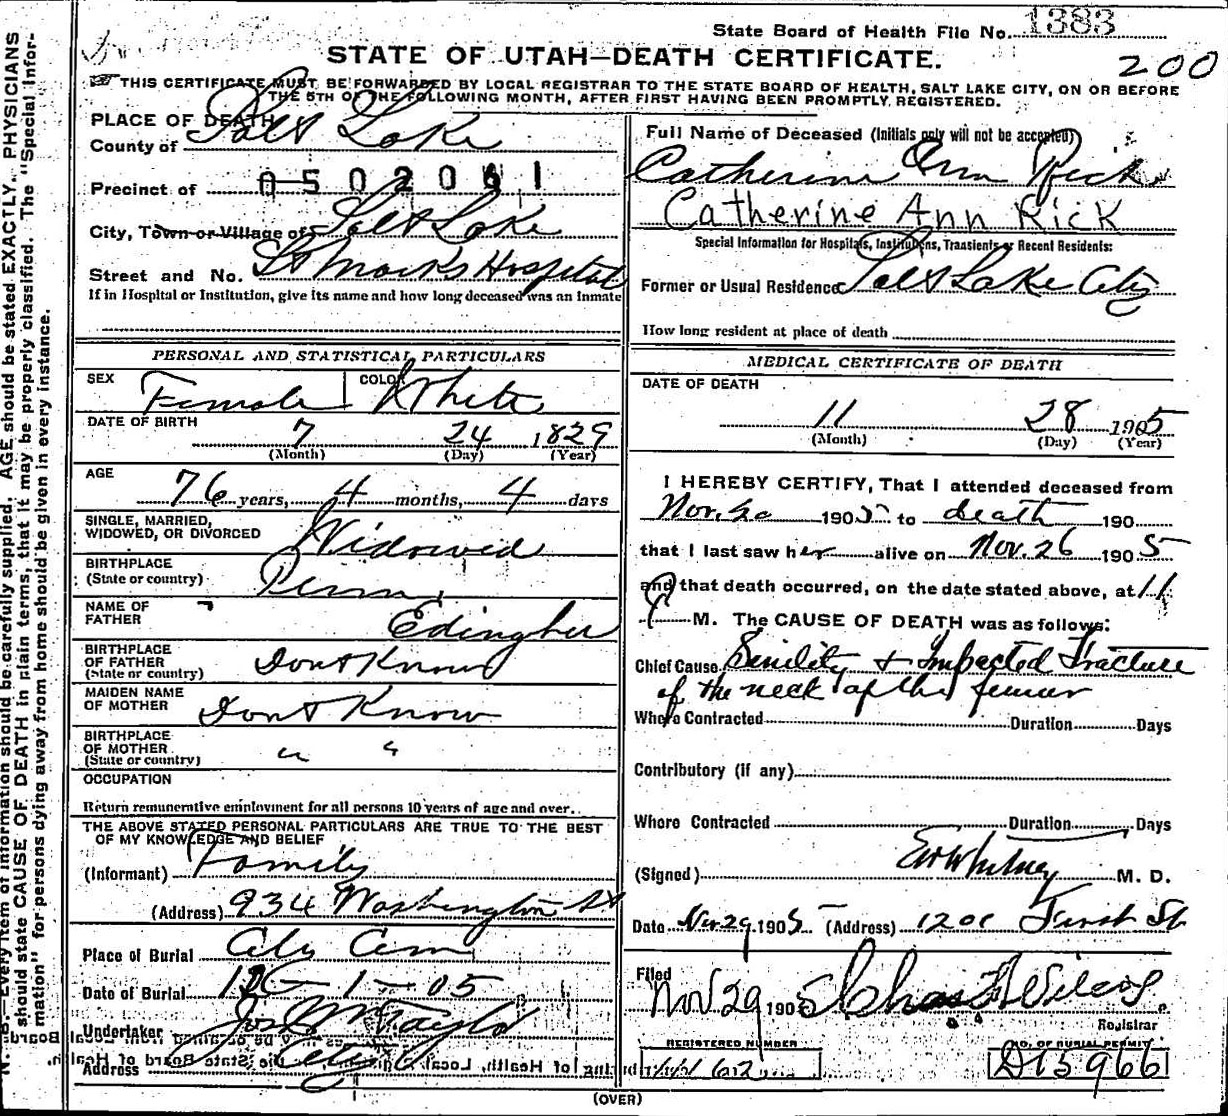 State Board of Health File No. 1383
STATE OF UTAH—DEATH CERTIFICATE.
200
THIS CERTIFICATE MUST BE FORWARDED BY LOCAL REGISTRAR TO THE STATE BOARD OF HEALTH, SALT LAKE CITY, ON OR BEFORE
THE 5TH OF THE FOLLOWING MONTH, AFTER FIRST HAVING BEEN PROMPTLY REGISTERED.
PLACE OF DEATH
County of Salt Lake
Precinct of 0502061
City, Town or Village of Salt Lake
Street and No. St Marks Hospital
If in Hospital or Institution, give its name and how long deceased was an inmate
PERSONAL AND STATISTICAL PARTICULARS
SEX Female COLOR White
DATE OF BIRTH
7 24 1829
(Month) (Day) (Year)
AGE
76 years, 4 months, 4 days
SINGLE, MARRIED,
WIDOWED, OR DIVORCED Widowed
BIRTHPLACE
(State or country) Penn.
NAME OF
FATHER Edingher
BIRTHPLACE
OF FATHER
(State or country) Dont Know
MAIDEN NAME
OF MOTHER Dont Know
BIRTHPLACE
OF MOTHER
(State or country) " "
OCCUPATION
Return remunerative employment for all persons 10 years of age and over.
THE ABOVE STATED PERSONAL PARTICULARS ARE TRUE TO THE BEST
OF MY KNOWLEDGE AND BELIEF
(Informant) Family
(Address) 934 Washington St
Place of Burial City Cem
Date of Burial 12-1-05
Undertaker Jos Wm Taylor
Address City
Full Name of Deceased (Initials only will not be accepted)
Catherine Ann Rick
Catherine Ann Rick
Special Information for Hospitals, Institutions, Transients or Recent Residents:
Former or Usual Residence Salt Lake City
How long resident at place of death
MEDICAL CERTIFICATE OF DEATH
DATE OF DEATH
11 28 1905
(Month) (Day) (Year)
I HEREBY CERTIFY, That I attended deceased from
Nov. 20 1905 to death 190
that I last saw her alive on Nov. 26 1905
and that death occurred, on the date stated above, at 11
P M. The CAUSE OF DEATH was as follows:
Chief Cause Sinility + Impacted Fracture
of the neck of the femur
Where Contracted Duration Days
Contributory (if any)
Where Contracted Duration Days
(Signed) Whitney M. D.
Date Nov 29 1905 (Address) First St
Filed
Nov 29 1905 Chas Wilcox
Registrar
REGISTERED NUMBER
612
NO. OF BURIAL PERMIT
D15966
(OVER)
N. B.—Every item of information should be carefully supplied. AGE should be stated EXACTLY. PHYSICIANS
should state CAUSE OF DEATH in plain terms, that it may be properly classified. The "Special Infor-
mation" for persons dying away from home should be given in every instance.